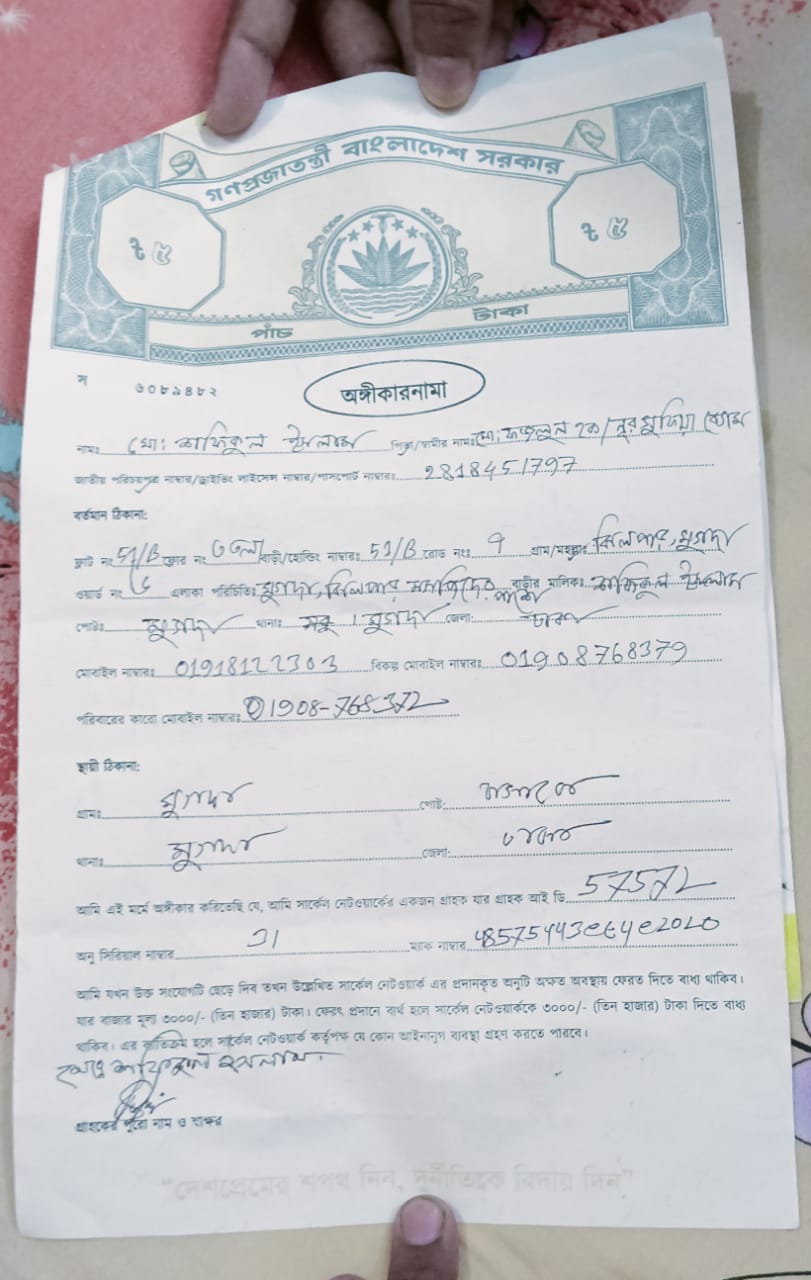 গণপ্রজাতন্ত্রী বাংলাদেশ সরকার
৳ ৫ ৳ ৫
পাঁচ টাকা
স ৬০৮৯৪৮২
অঙ্গীকারনামা
নামঃ মো: শফিকুল ইসলাম পিতা/স্বামীর নামঃ মো: ফজলুল হক/নুর সুফিয়া বেগম
জাতীয় পরিচয়পত্র নাম্বার/ড্রাইভিং লাইসেন্স নাম্বার/পাসপোর্ট নাম্বারঃ 2818451797
বর্তমান ঠিকানা:
ফ্লাট নং 51/B ফ্লোর নং ৩ তলা বাড়ী/হোল্ডিং নাম্বারঃ 51/B রোড নংঃ গ্রাম/মহল্লাঃ ঝিলপাড়, মুগদা
ওয়ার্ড নং ৬ এলাকা পরিচিতিঃ মুগদা, ঝিলপাড় মসজিদের পাশে বাড়ীর মালিকঃ শফিকুল ইসলাম
পোষ্টঃ মুগদা থানাঃ মুগদা জেলা: ঢাকা
মোবাইল নাম্বারঃ 01918122303 বিকল্প মোবাইল নাম্বারঃ 01908768379
পরিবারের কারো মোবাইল নাম্বারঃ 01908-768372
স্থায়ী ঠিকানা:
গ্রামঃ মুগদা পোষ্ট:
থানাঃ মুগদা জেলা: ঢাকা
আমি এই মর্মে অঙ্গীকার করিতেছি যে, আমি সার্কেল নেটওয়ার্কের একজন গ্রাহক যার গ্রাহক আই ডি 57572
অনু সিরিয়াল নাম্বার ম্যাক নাম্বার
আমি যখন উক্ত সংযোগটি ছেড়ে দিব তখন উল্লেখিত সার্কেল নেটওয়ার্ক এর প্রদানকৃত অনুটি অক্ষত অবস্থায় ফেরত দিতে বাধ্য থাকিব।
যার বাজার মূল্য ৩০০০/- (তিন হাজার) টাকা। ফেরৎ প্রদানে ব্যর্থ হলে সার্কেল নেটওয়ার্ককে ৩০০০/- (তিন হাজার) টাকা দিতে বাধ্য
থাকিব। এর ব্যতিক্রম হলে সার্কেল নেটওয়ার্ক কর্তৃপক্ষ যে কোন আইনানুগ ব্যবস্থা গ্রহণ করতে পারবে।
মোঃ শফিকুল ইসলাম
গ্রাহকের পুরো নাম ও স্বাক্ষর
"দেশপ্রেমের শপথ নিন, দুর্নীতিকে বিদায় দিন"